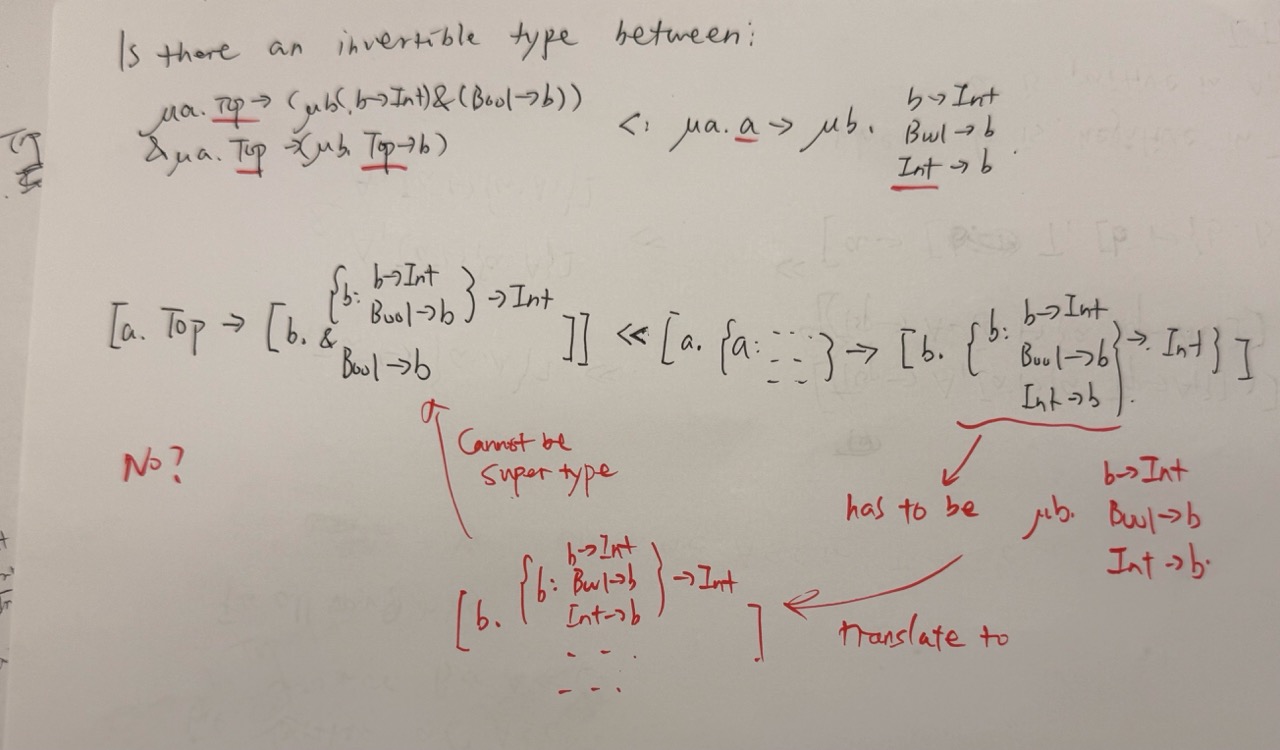 Is there an invertible type between:
μa. Top → (μb(. b→Int)&(Bool→b))
& μa. Top →(μb. Top→b)
<: μa. a → μb.
b→Int
Bool→b
Int→b
.
[a. Top → [b. & {b: b→Int
Bool→b } → Int
Bool→b ]] ≪ [a. {a: --- } → [b. {b: b→Int
Bool→b
Int→b } → Int } ]
No?
Cannot be
super type
has to be μb. b→Int
Bool→b
Int→b.
[b. {b: b→Int
Bool→b
Int→b } → Int
- - .
- - . ]
translate to